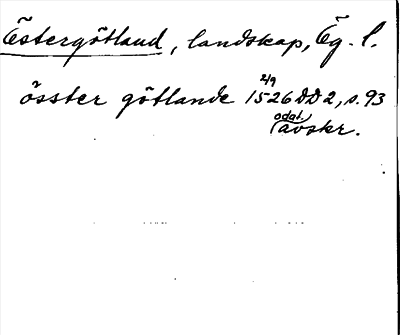 Östergötland, landskap, Ög. l.
össter götlande 2/9 1526 DD 2, s. 93
odat. avskr.